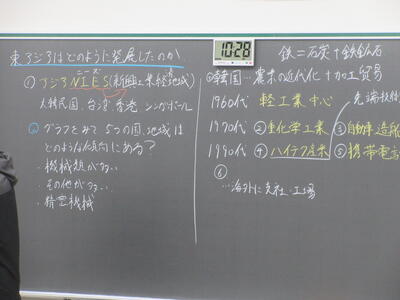 東アジアはどのように発展したのか
ニーズ
①アジアNIES(新興工業経済地域)
大韓民国、台湾、香港、シンガポール
②グラフをみて5つの国、地域は
どのような傾向にある?
・機械類が多い
・その他が多い
・精密機械
10:28
鉄=石炭+鉄鉱石
韓国…農業の近代化+加工貿易
1960代 軽工業中心
先端技術
1970代 ②重化学工業 ③自動車 造船
1990代 ④ハイテク産業 ⑤携帯電話
⑥
…海外に支社・工場